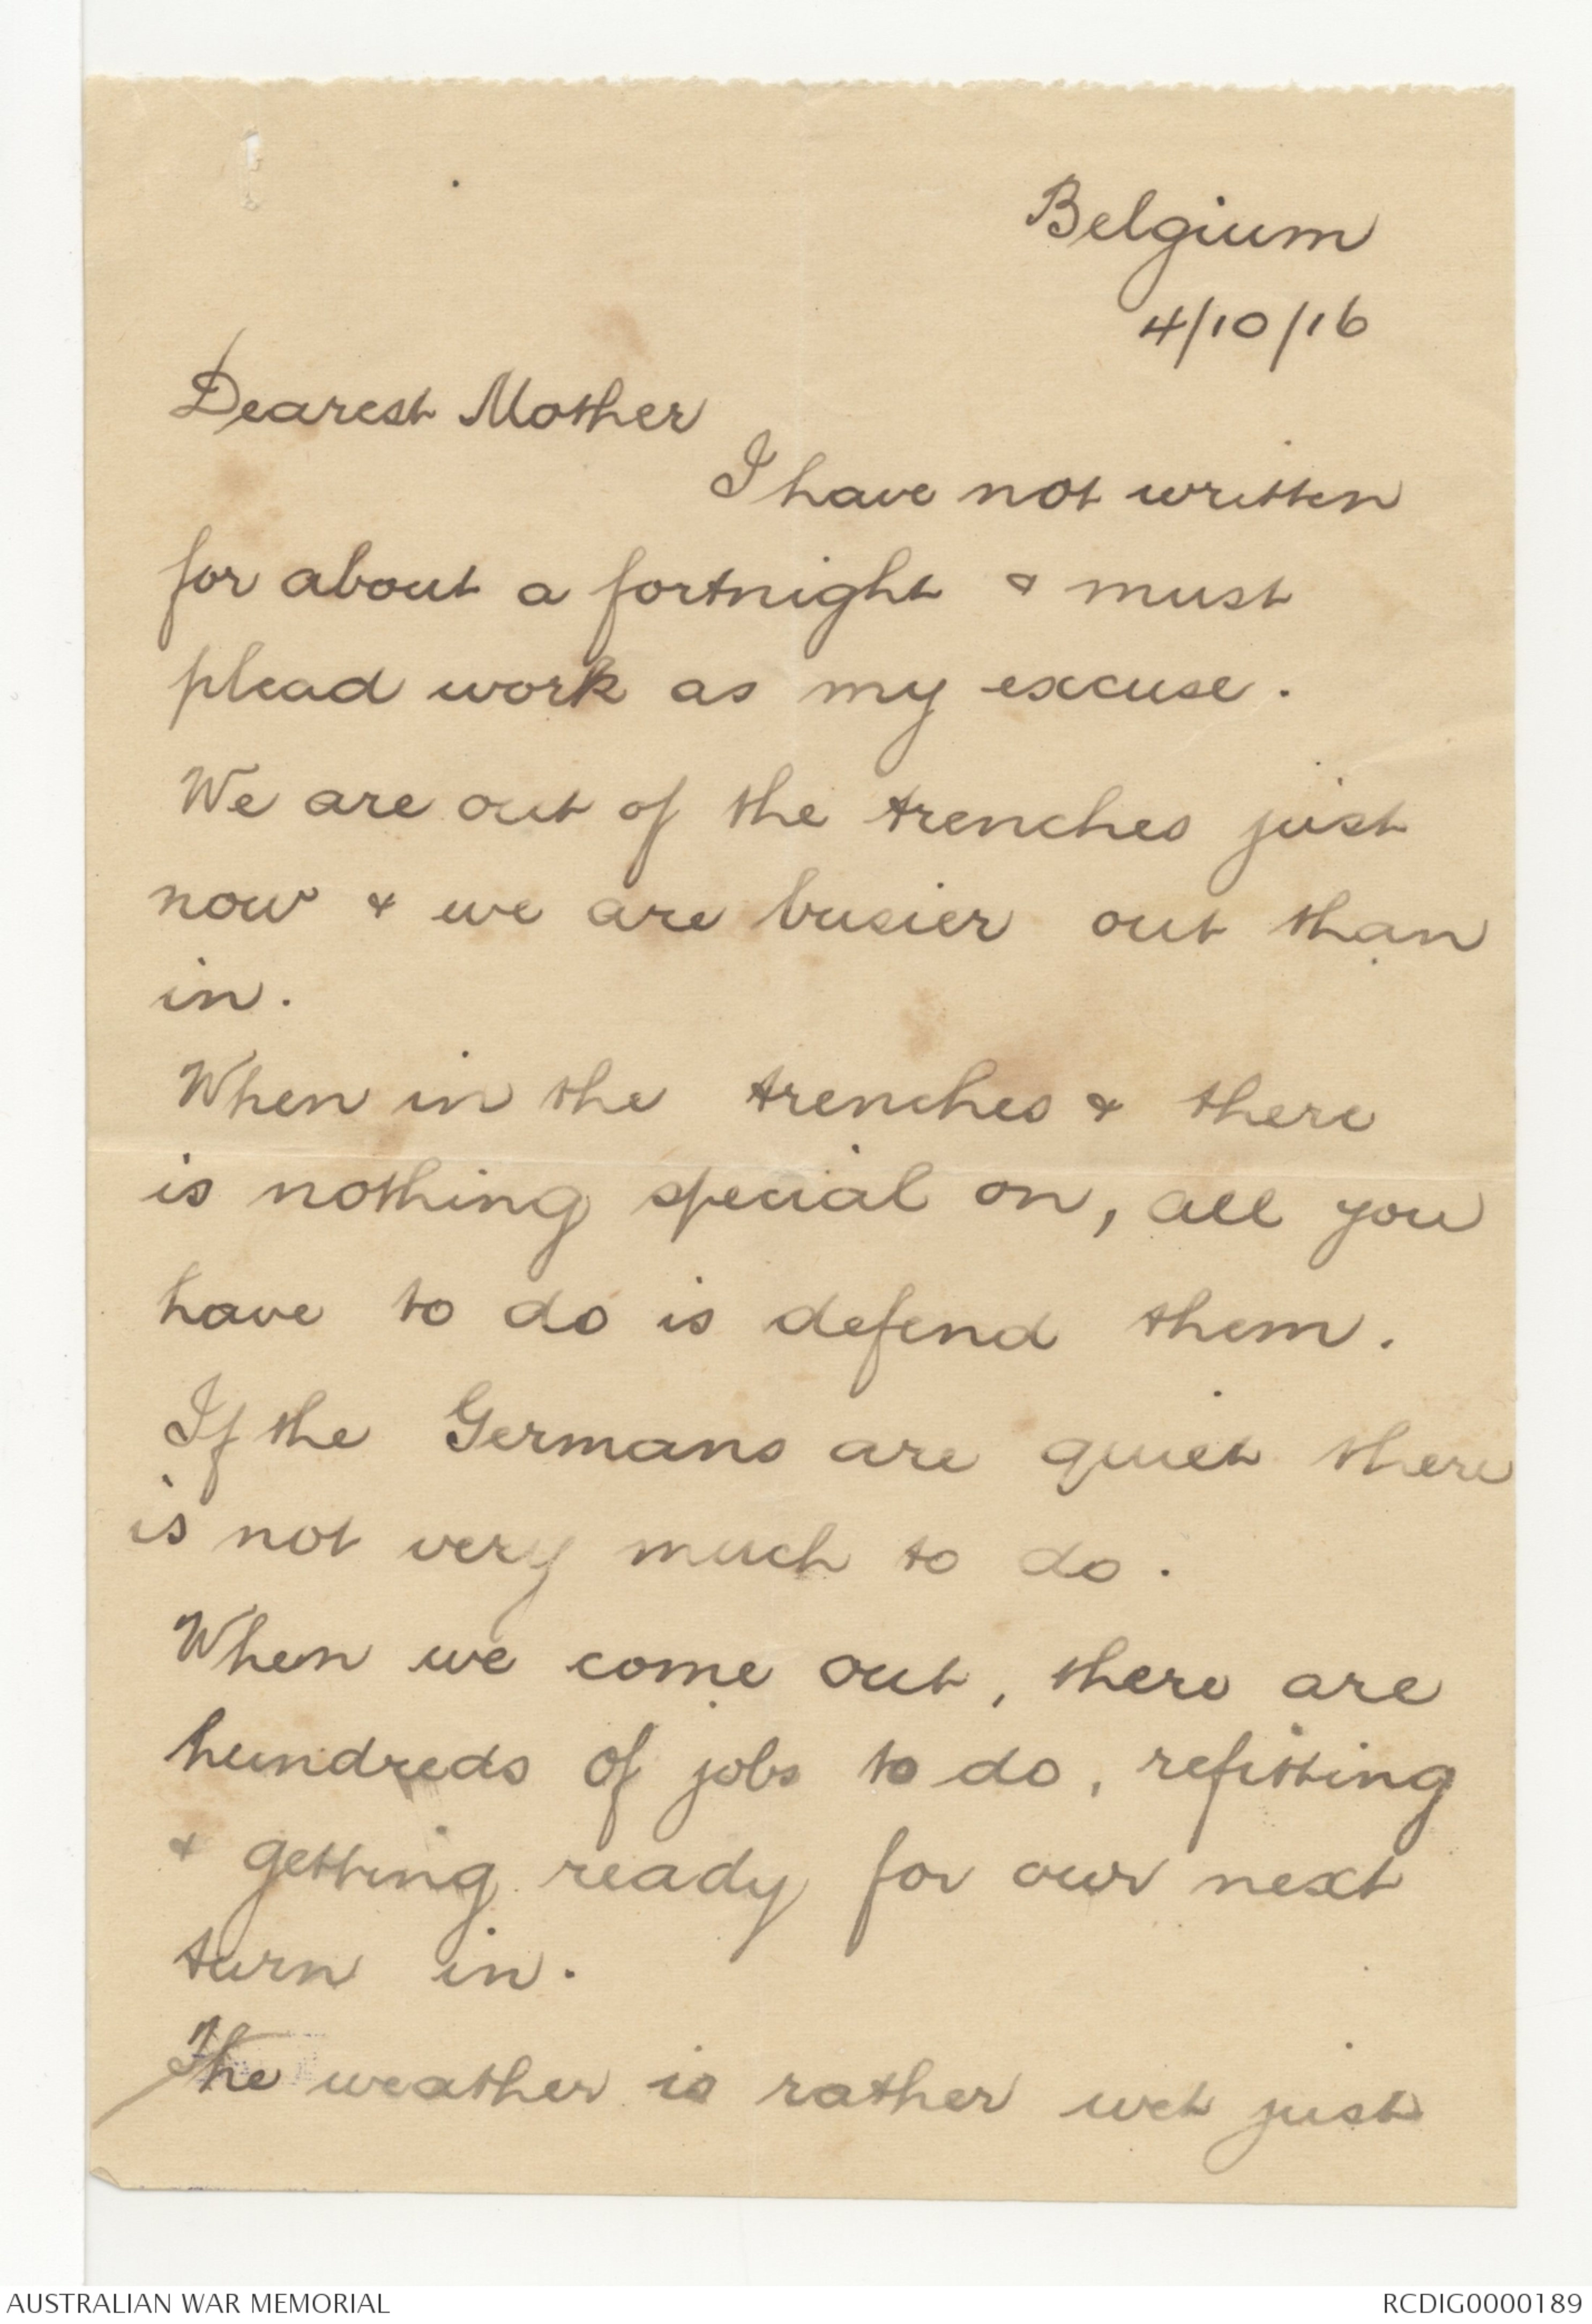 Belgium
4/10/16
Dearest Mother
I have not written
for about a fortnight & must
plead work as my excuse.
We are out of the trenches just
now & we are busier out than
in.
When in the trenches & there
is nothing special on, all you
have to do is defend them.
If the Germans are quiet there
is not very much to do.
When we come out, there are
hundreds of jobs to do, refitting
& getting ready for our next
turn in.
The weather is rather wet just
AUSTRALIAN WAR MEMORIAL
RCDIG0000189